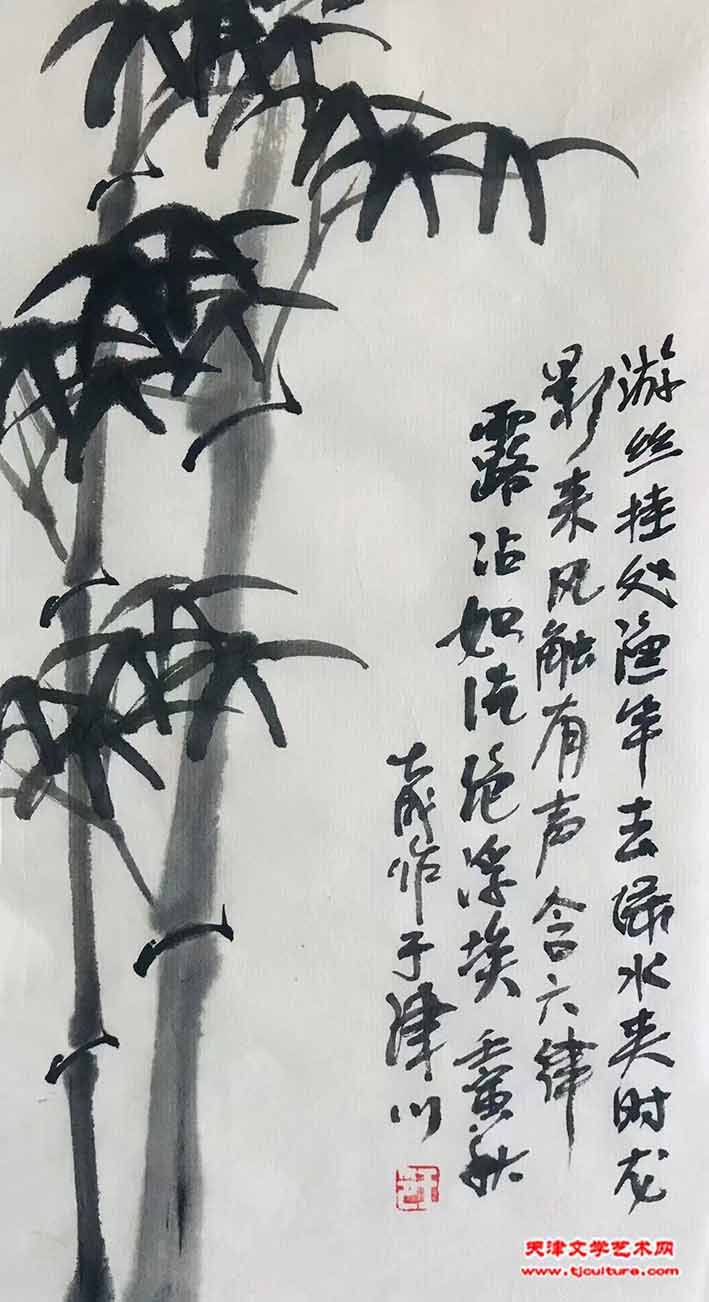 游丝挂处渔竿去水夹时龙
影来风触有声含六律
露沾如洗绝浮埃 壬寅秋
成作于津门
天津文学艺术网
www.tjculture.com